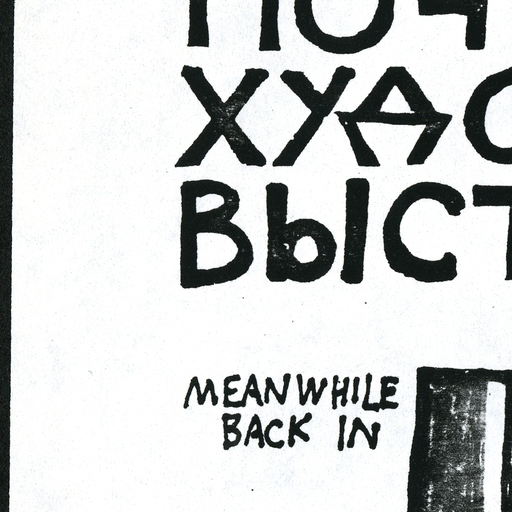 ПОЧ
ХУДО
ВЫСТ
MEANWHILE
BACK IN